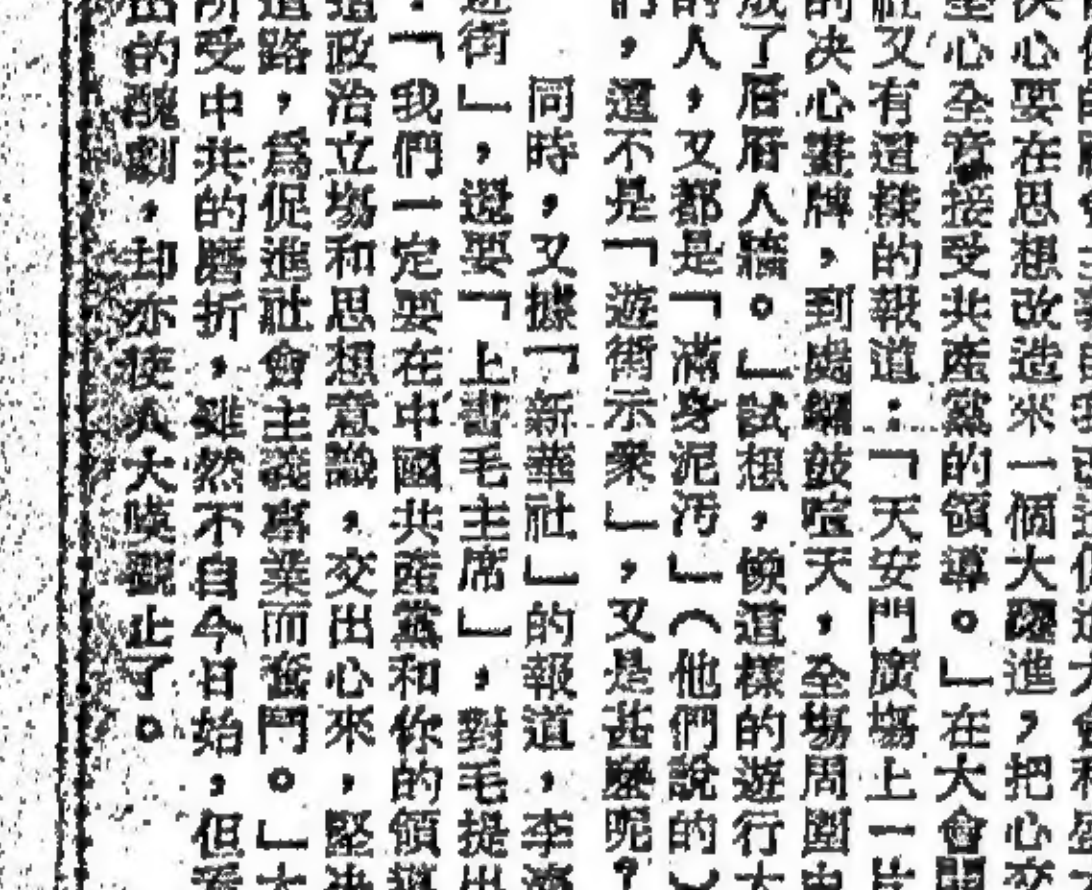 決心要在思想改造來一個大躍進，把心交
全心全意接受共產黨的領導。」在大會開
社又有這樣的報道：「天安門廣場上一片
的決心書牌，到處鑼鼓喧天，全場周圍由
成了層層人牆。」試想，像這樣的遊行大
的人，又都是「滿身泥污」（他們說的）
們，還不是「遊街示眾」，又是甚麼呢？
同時，又據「新華社」的報道，李濟
遊街」，還要「上書毛主席」，對毛提出
：「我們一定要在中國共產黨和你的領導
造政治立場和思想意識，交出心來，堅決
道路，為促進社會主義事業而奮鬥。」大
所受中共的磨折，雖然不自今日始，但看
出的醜劇，却亦使人大嘆觀止了。